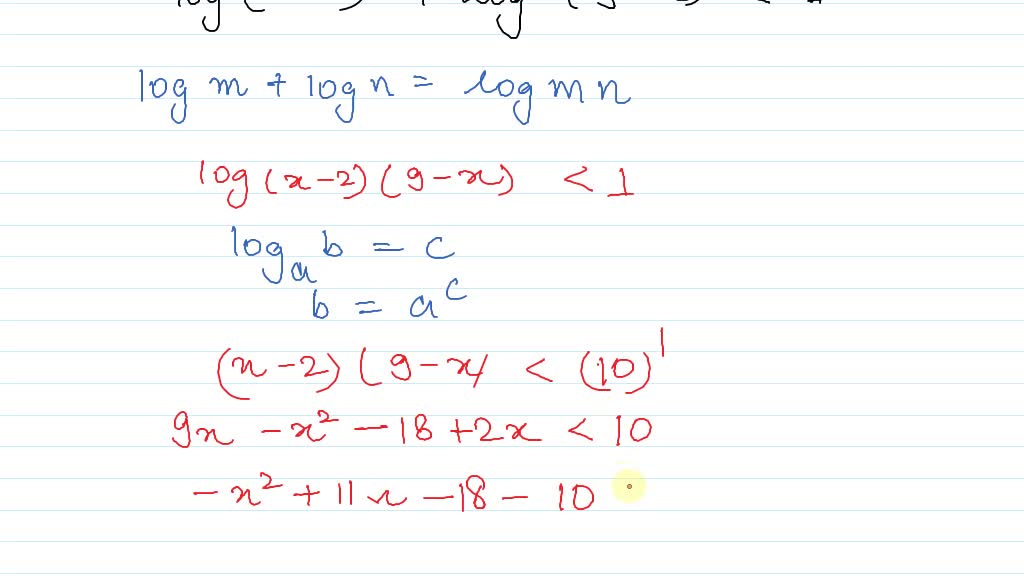 log m + log n = log m n
log (x-2) (9-x) < 1
log_a b = c
b = a^c
(x-2) (9-x) < (10)^1
9x - x² - 18 + 2x < 10
- x² + 11x - 18 - 10